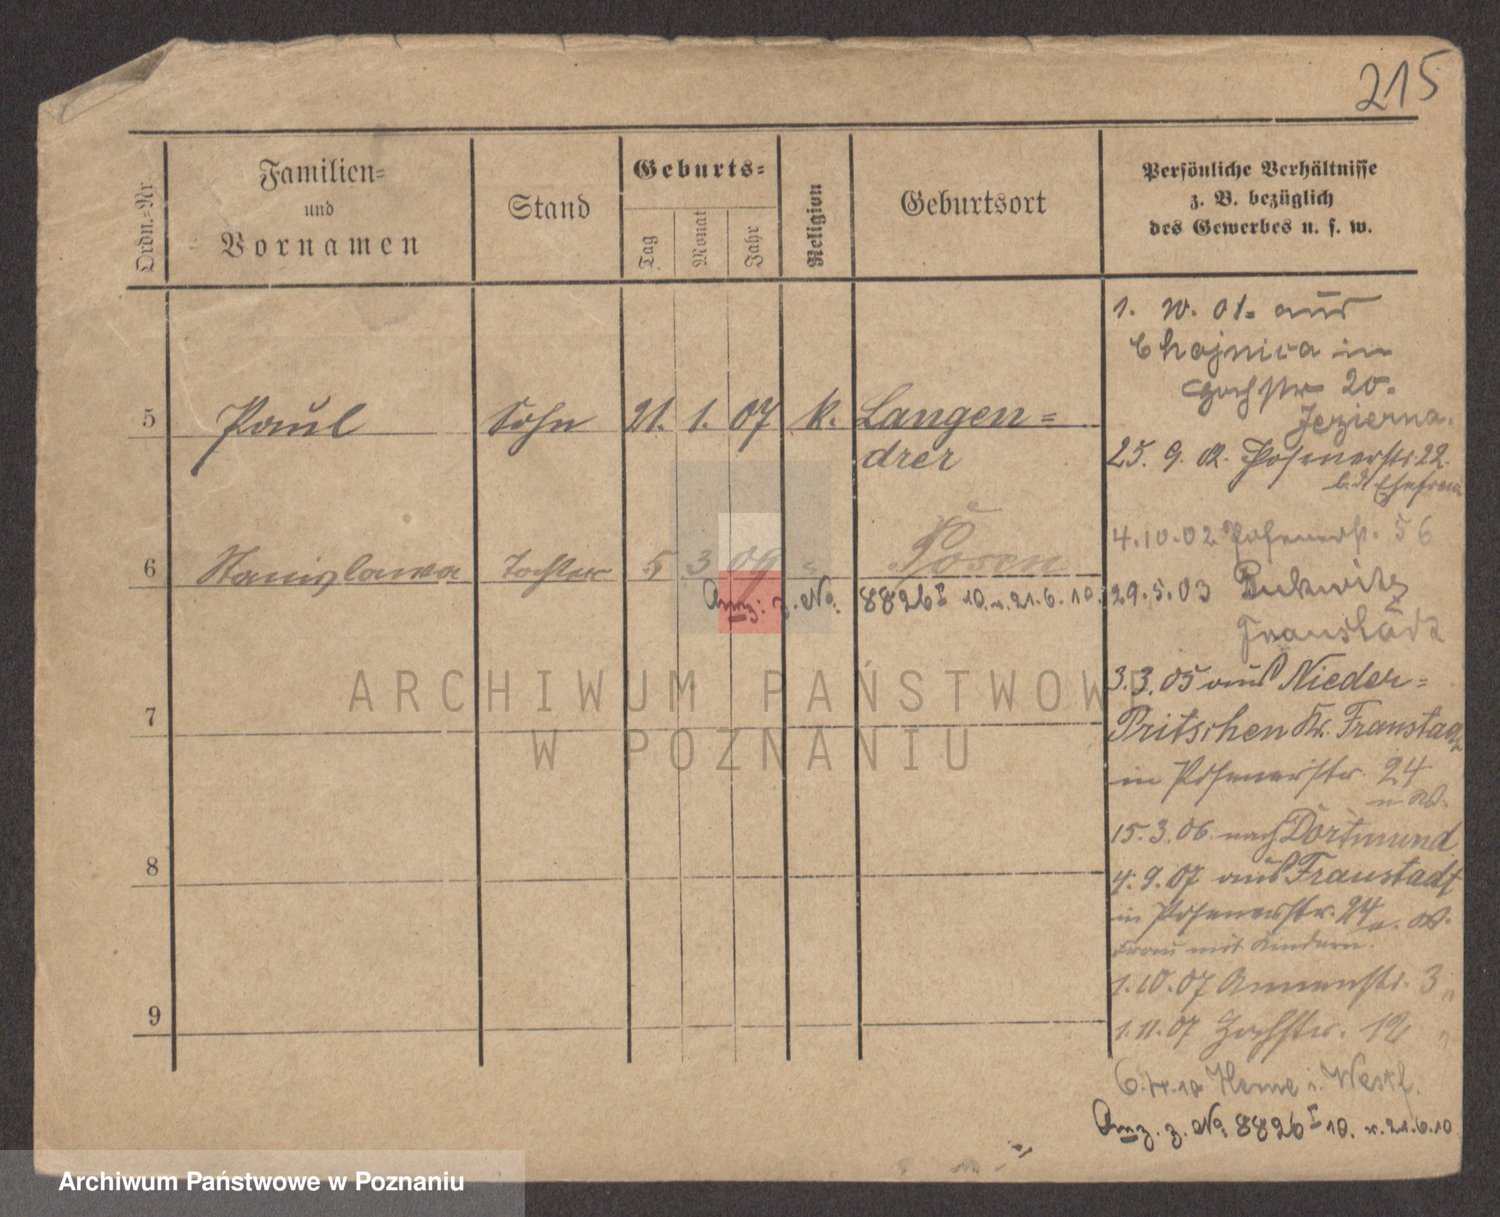 215
Ordn.-Nr.
Familien-
und
Vornamen
Stand
Geburts-
Tag
Monat
Jahr
Religion
Geburtsort
Persönliche Verhältnisse
z. B. bezüglich
des Gewerbes u. s. w.
1. 01. aus
Chojnica in
20.
Jezierna.
5 Paul Sohn 21. 1. 07 k. Langen=
drer
25. 9. 02. Posenerstr. 22.
Ehefrau
4.10.02 Posenerstr. 56
6 Stanislawa Tochter 5 3 09 " Posen
Anz. z. No. 8826 I 10. v. 21.6.10.
29.5.03 Bukwitz
Fraustadt
3.3.05 aus Nieder=
Pritschen Kr. Fraustadt
in Posenerstr. 24
7
15.3.06. nach Dortmund
8
4.9.07 aus Fraustadt
in Posenerstr. 24
Frau mit Kindern.
1.10.07 Annenstr. 3 "
9
1.11.07 12 "
Herne i. Westf.
Anz. z. No 8826 I 10. v. 21.6.10
ARCHIWUM PAŃSTWOWE
W POZNANIU
Archiwum Państwowe w Poznaniu